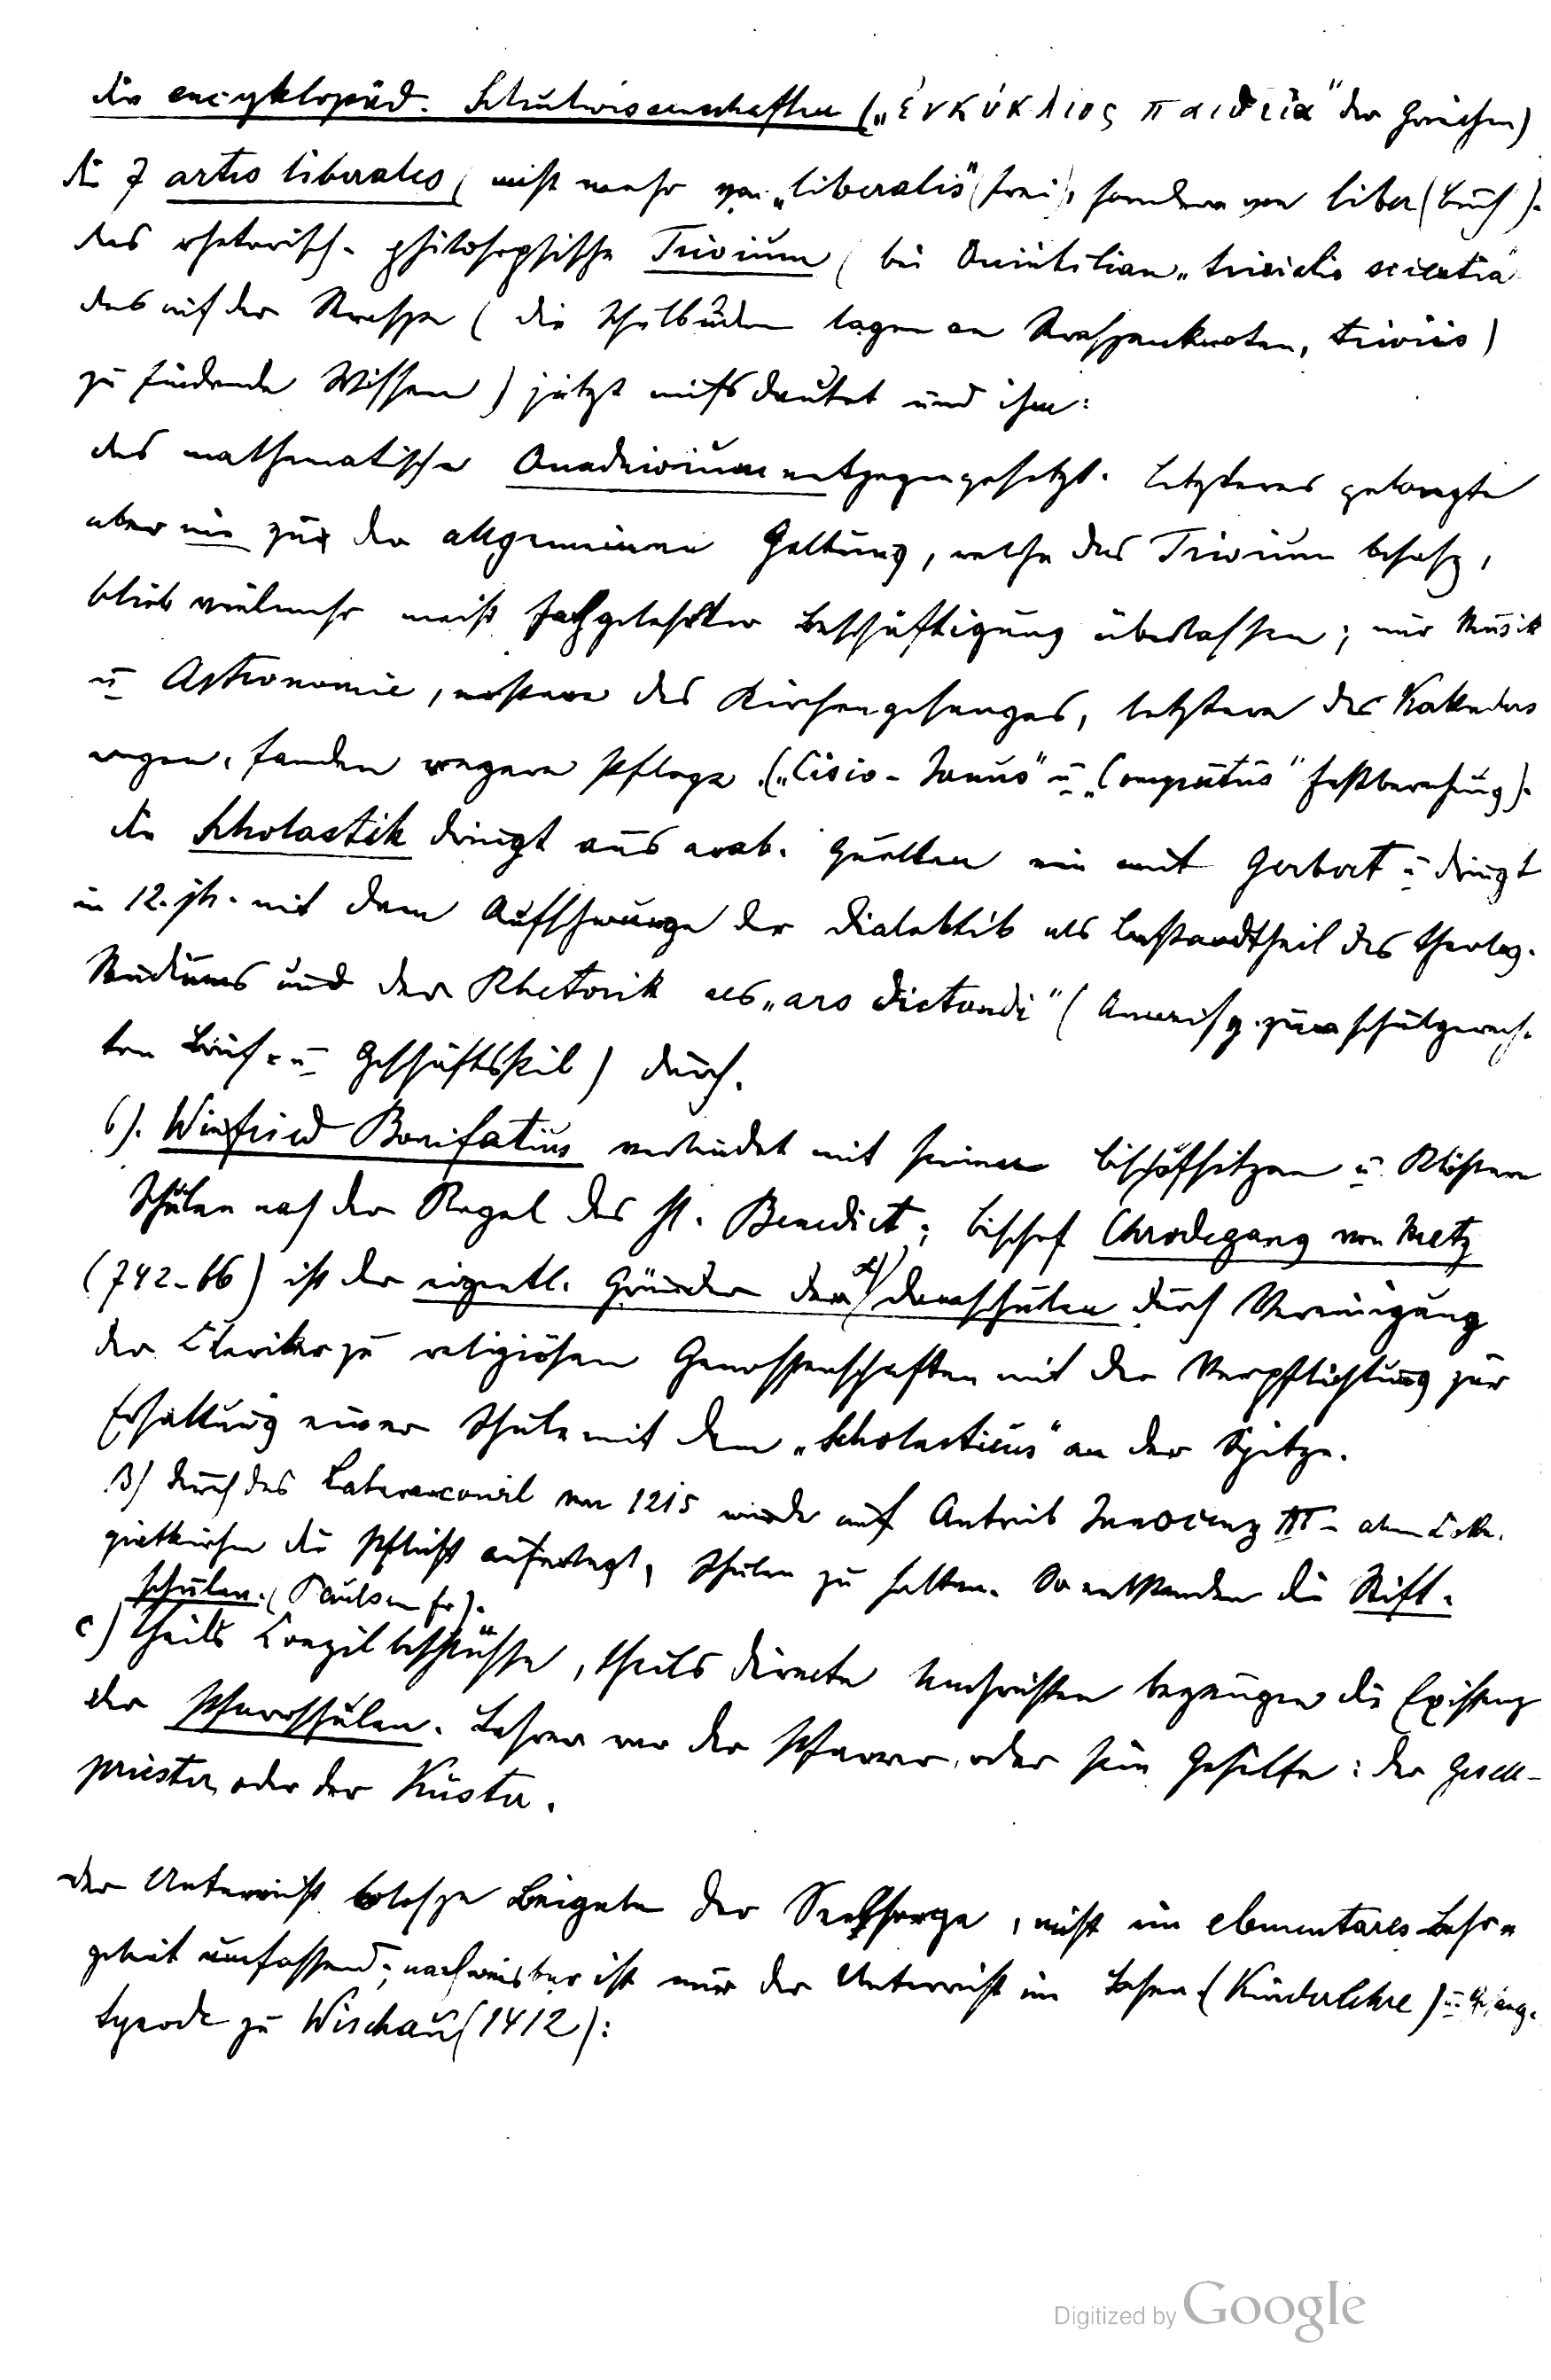 die encyklopäd. Schulwissenschaften („ἐνκύκλιος παιδεία“ der Griechen)
die 7 artes liberales (nicht mehr von „liberalis“ (frei), sondern von liber (Buch).
das rhetorisch-philosophische Trivium (bei Quintilian „trivialis scientia“
das auf der Strasse (die Schulbuden lagen an Strassenknoten, triviis)
zu findende Wissen) jetzt missdeutet und ihm:
das mathematische Quadrivium entgegengesetzt. Letzteres gelangte
aber nie zu der allgemeinen Geltung, welche das Trivium besass,
blieb vielmehr meist fachgelehrter Beschäftigung überlassen; nur Musik
u Astronomie, erstere des Kirchengesanges, letztere des Kalenders
wegen, fanden regere Pflege („Cisio-Janus“ u „Computus“ Festberechnung).
Die Scholastik dringt aus arab. Quellen ein mit Gerbert u dringt
im 12. Jh. mit dem Aufschwunge der Dialektik als Bestandtheil des theolog.
Studiums und der Rhetorik als „ars dictandi“ (Anweisg. zum schulgerech-
ten Brief- u Geschäftsstil) durch.
b). Winfried Bonifatius verbindet mit seinen Bischofsitzen u Klöstern
Schulen nach der Regel des hl. Benedict; Bischof Chrodegang von Metz
(742-66) ist der eigentl. Gründer der α) Domschulen durch Vereinigung
der Cleriker zu religiösen Genossenschaften mit der Verpflichtung zur
Erhaltung einer Schule mit dem „Scholasticus“ an der Spitze.
β) durch das Lateranconcil von 1215 wurde auf Antrieb Innocenz III. allen Colle-
giatkirchen die Pflicht auferlegt, Schulen zu halten. So entstanden die Stift-
schulen. (Paulsen Fr).
c) theils Conzilbeschlüsse, theils directe Nachrichten bezeugen die Existenz
der Pfarrschulen. Lehrer war der Pfarrer, oder sein Gehilfe: der Gesell-
priester, oder der Küster.
Der Unterricht blosse Beigabe der Seelsorge, nicht ein elementares Lehr-
gebiet umfassend; nachweisbar ist nur der Unterricht im Lesen (Kinderlehre) u Gesang.
Synode zu Wischau (1412):
Digitized by Google